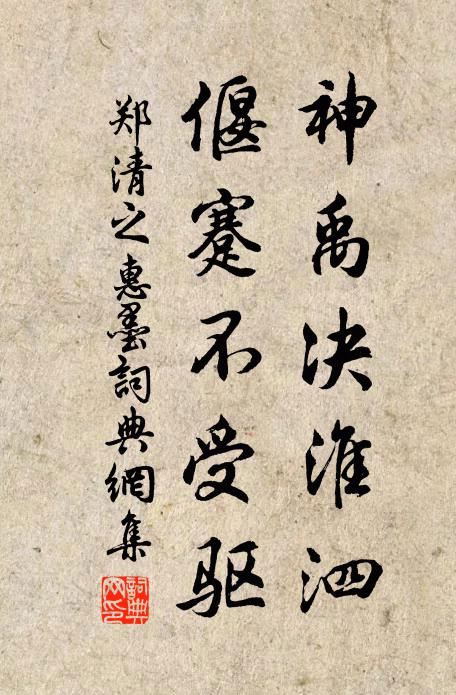 神禹决淮泗
偃蹇不受驱
郑清之惠墨詞典網集
詞典网印